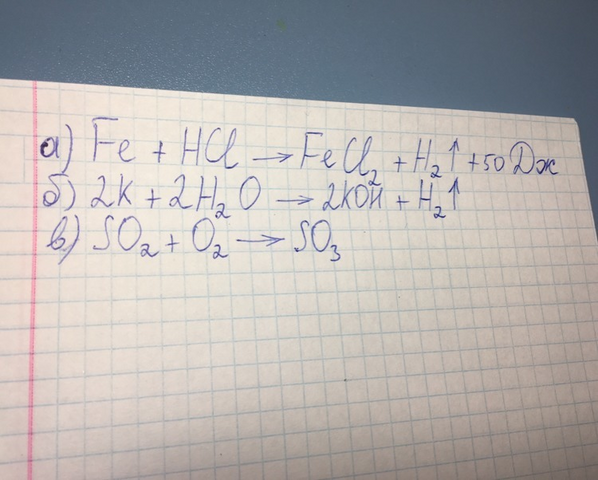 а) Fe + HCl → FeCl₂ + H₂↑ + 50 Дж
б) 2K + 2H₂O → 2KOH + H₂↑
в) SO₂ + O₂ → SO₃